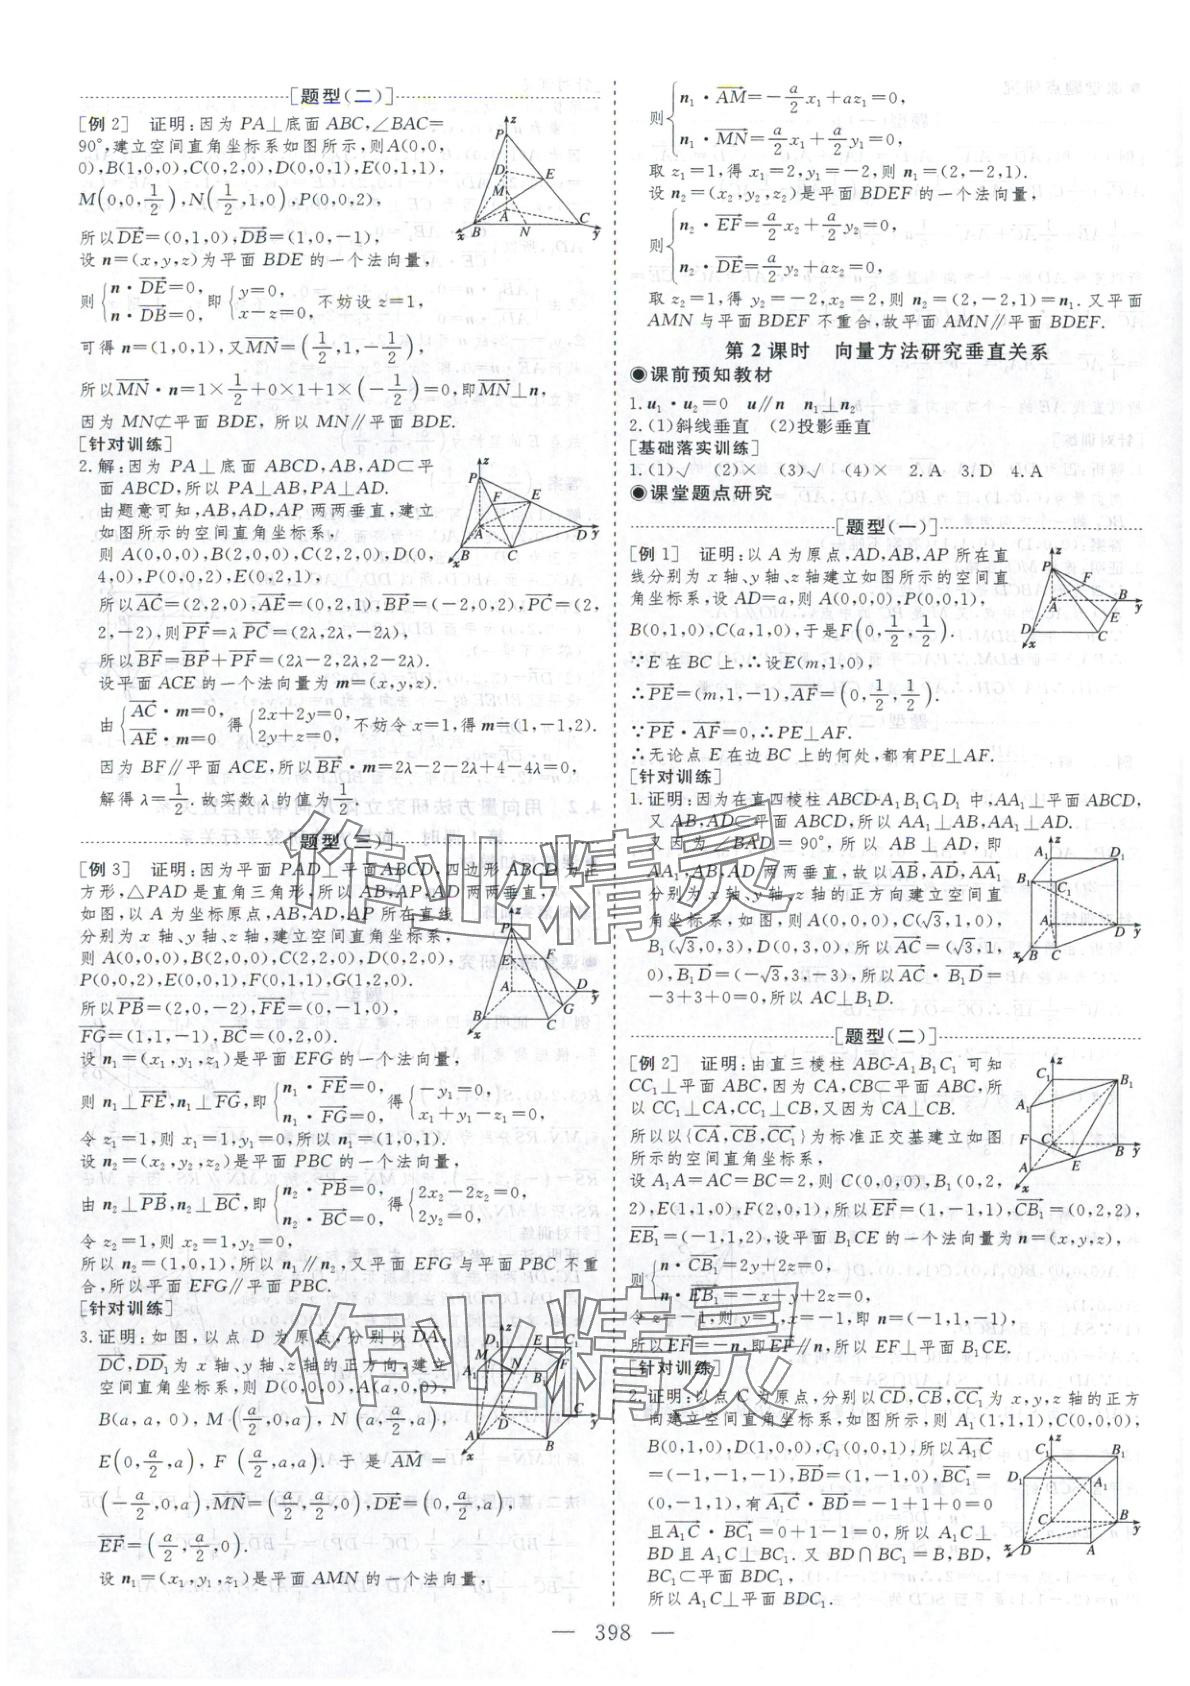 [题型(二)]
[例2] 证明:因为 PA⊥底面 ABC,∠BAC=
90°,建立空间直角坐标系如图所示,则A(0,0,
0),B(1,0,0),C(0,2,0),D(0,0,1),E(0,1,1),
M(0,0,1/2),N(1/2,1,0),P(0,0,2),
所以DE=(0,1,0),DB=(1,0,-1),
设 n=(x,y,z)为平面 BDE 的一个法向量,
则{n·DE=0, n·DB=0, 即{y=0, x-z=0, 不妨设 z=1,
可得 n=(1,0,1),又MN=(1/2,1,-1/2),
所以MN·n=1×1/2+0×1+1×(-1/2)=0,即MN⊥n,
因为 MN⊄平面 BDE, 所以 MN∥平面 BDE.
[针对训练]
2.解:因为 PA⊥底面 ABCD,AB,AD⊂平
面 ABCD,所以 PA⊥AB,PA⊥AD.
由题意可知,AB,AD,AP 两两垂直,建立
如图所示的空间直角坐标系,
则 A(0,0,0),B(2,0,0),C(2,2,0),D(0,
4,0),P(0,0,2),E(0,2,1),
所以AC=(2,2,0),AE=(0,2,1),BP=(-2,0,2),PC=(2,
2,-2),则PF=λPC=(2λ,2λ,-2λ),
所以BF=BP+PF=(2λ-2,2λ,2-2λ).
设平面 ACE 的一个法向量为 m=(x,y,z).
由{AC·m=0, AE·m=0 得{2x+2y=0, 2y+z=0, 不妨令x=1,得 m=(1,-1,2).
因为 BF∥平面 ACE,所以BF·m=2λ-2-2λ+4-4λ=0,
解得 λ=1/2. 故实数 λ 的值为1/2.
[题型(三)]
[例3] 证明:因为平面 PAD⊥平面ABCD,四边形 ABCD 为正
方形,△PAD 是直角三角形,所以 AB,AP,AD 两两垂直,
如图,以 A 为坐标原点,AB,AD,AP 所在直线
分别为 x 轴、y 轴、z 轴,建立空间直角坐标系,
则 A(0,0,0),B(2,0,0),C(2,2,0),D(0,2,0),
P(0,0,2),E(0,0,1),F(0,1,1),G(1,2,0).
所以PB=(2,0,-2),FE=(0,-1,0),
FG=(1,1,-1),BC=(0,2,0).
设 n₁=(x₁,y₁,z₁)是平面 EFG 的一个法向量,
则 n₁⊥FE,n₁⊥FG,即{n₁·FE=0, n₁·FG=0, 得{-y₁=0, x₁+y₁-z₁=0,
令 z₁=1,则 x₁=1,y₁=0,所以 n₁=(1,0,1).
设 n₂=(x₂,y₂,z₂)是平面 PBC 的一个法向量,
由 n₂⊥PB,n₂⊥BC,即{n₂·PB=0, n₂·BC=0, 得{2x₂-2z₂=0, 2y₂=0,
令 z₂=1,则 x₂=1,y₂=0,
所以 n₂=(1,0,1),所以 n₁∥n₂,又平面 EFG 与平面 PBC 不重
合,所以平面 EFG∥平面 PBC.
[针对训练]
3.证明:如图,以点 D 为原点,分别以DA,
DC,DD₁为 x 轴、y 轴、z 轴的正方向,建立
空间直角坐标系,则 D(0,0,0),A(a,0,0),
B(a,a,0),M(a/2,0,a),N(a,a/2,a),
E(0,a/2,a),F(a/2,a,a).于是AM=
(-a/2,0,a),MN=(a/2,a/2,0),DE=(0,a/2,a),
EF=(a/2,a/2,0).
设 n₁=(x₁,y₁,z₁)是平面 AMN 的一个法向量,
则{n₁·AM=-a/2x₁+az₁=0, n₁·MN=a/2x₁+a/2y₁=0,
取 z₁=1,得 x₁=2,y₁=-2,则 n₁=(2,-2,1).
设 n₂=(x₂,y₂,z₂)是平面 BDEF 的一个法向量,
则{n₂·EF=a/2x₂+a/2y₂=0, n₂·DE=a/2y₂+az₂=0,
取 z₂=1,得 y₂=-2,x₂=2,则 n₂=(2,-2,1)=n₁.又平面
AMN 与平面 BDEF 不重合,故平面 AMN∥平面 BDEF.
第2课时 向量方法研究垂直关系
◉课前预知教材
1.u₁·u₂=0 u∥n n₁⊥n₂
2.(1)斜线垂直 (2)投影垂直
[基础落实训练]
1.(1)√ (2)× (3)√ (4)× 2.A 3.D 4.A
◉课堂题点研究
[题型(一)]
[例1] 证明:以 A 为原点,AD,AB,AP 所在直
线分别为 x 轴、y 轴、z 轴建立如图所示的空间直
角坐标系,设 AD=a,则 A(0,0,0),P(0,0,1),
B(0,1,0),C(a,1,0),于是F(0,1/2,1/2).
∵E 在 BC 上,∴设E(m,1,0),
∴PE=(m,1,-1),AF=(0,1/2,1/2).
∵PE·AF=0,∴PE⊥AF.
∴无论点 E 在边 BC 上的何处,都有PE⊥AF.
[针对训练]
1.证明:因为在直四棱柱 ABCD-A₁B₁C₁D₁ 中,AA₁⊥平面 ABCD,
又 AB,AD⊂平面 ABCD,所以 AA₁⊥AB,AA₁⊥AD.
又因为∠BAD=90°,所以 AB⊥AD,即
AA₁,AB,AD 两两垂直,故以AB,AD,AA₁
分别为 x 轴、y 轴、z 轴的正方向建立空间直
角坐标系,如图,则 A(0,0,0),C(√3,1,0),
B₁(√3,0,3),D(0,1,0),所以AC=(√3,1,
0),B₁D=(-√3,1,-3),所以AC·B₁D=
-3+3+0=0,所以 AC⊥B₁D.
[题型(二)]
[例2] 证明:由直三棱柱 ABC-A₁B₁C₁ 可知
CC₁⊥平面 ABC,因为 CA,CB⊂平面 ABC,所
以 CC₁⊥CA,CC₁⊥CB,又因为 CA⊥CB.
所以以{CA,CB,CC₁}为标准正交基建立如图
所示的空间直角坐标系,
设 A₁A=AC=BC=2,则 C(0,0,0),B₁(0,2,
2),E(1,1,0),F(2,0,1),所以EF=(1,-1,1),CB₁=(0,2,2),
EB₁=(-1,1,2),设平面 B₁CE 的一个法向量为 n=(x,y,z),
则{n·CB₁=2y+2z=0, n·EB₁=-x+y+2z=0,
令 z=-1,则 y=1,x=-1,即 n=(-1,1,-1),
所以EF=-n,即EF∥n,所以 EF⊥平面 B₁CE.
[针对训练]
2.证明:以点 C 为原点,分别以CD,CB,CC₁为 x,y,z 轴的正方
向建立空间直角坐标系,如图所示,则 A₁(1,1,1),C(0,0,0),
B(0,1,0),D(1,0,0),C₁(0,0,1),所以A₁C
=(-1,-1,-1),BD=(1,-1,0),BC₁=
(0,-1,1),有A₁C·BD=-1+1+0=0
且A₁C·BC₁=0+1-1=0,所以 A₁C⊥
BD且 A₁C⊥BC₁.又 BD∩BC₁=B,BD,
BC₁⊂平面 BDC₁,
所以 A₁C⊥平面 BDC₁.
作业精灵
作业精灵
— 398 —